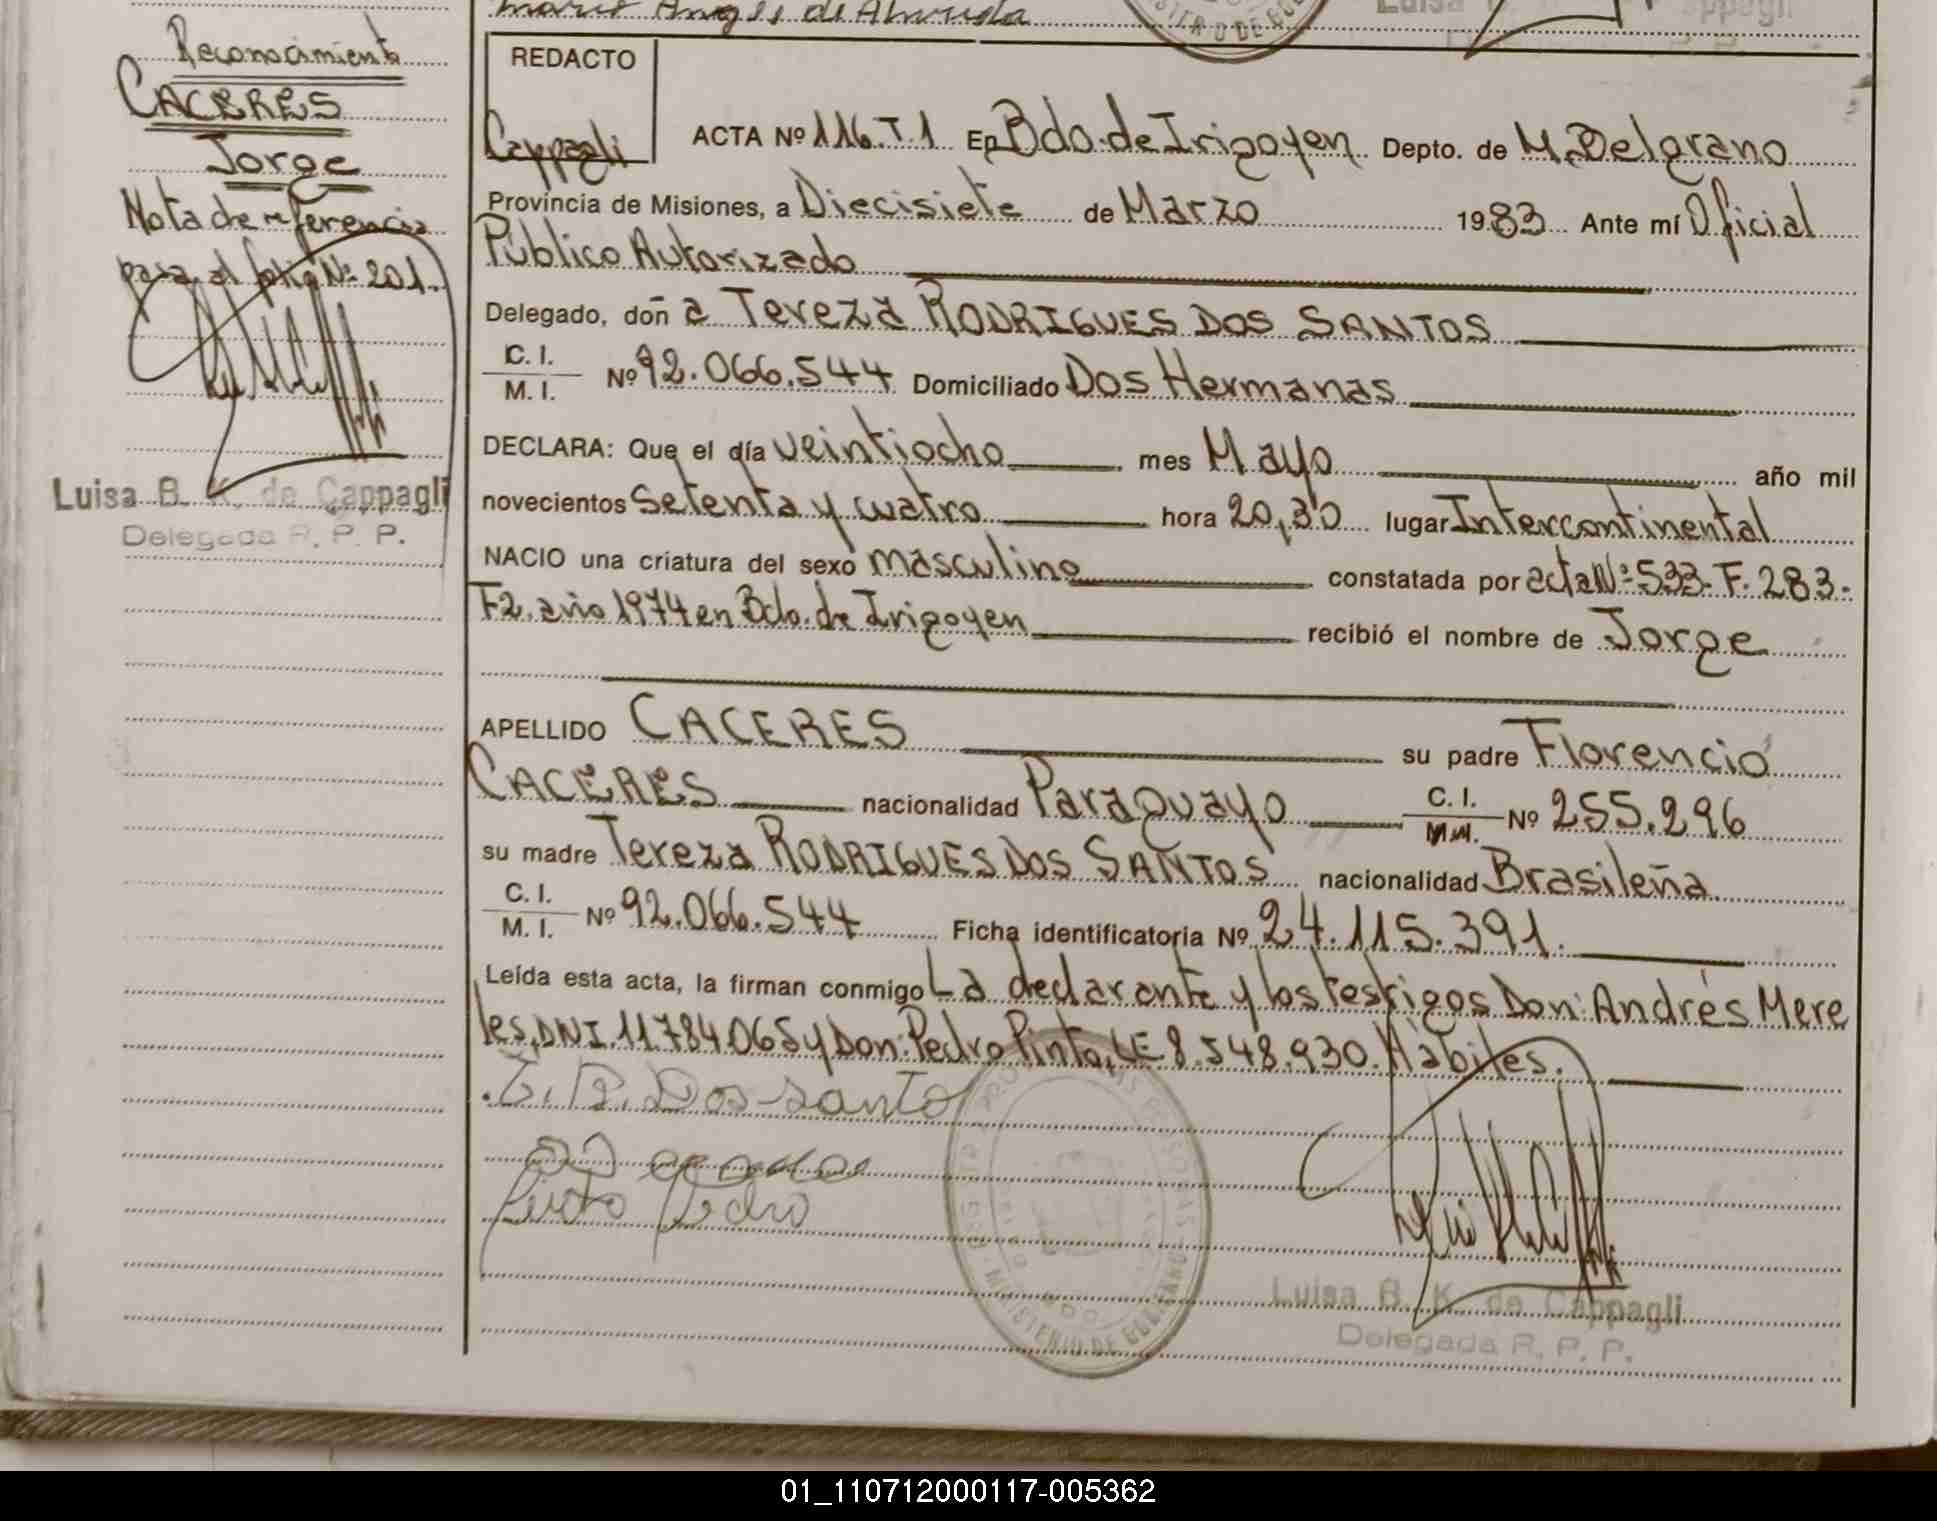 Mario Anges de Almeida
Reconocimiento
CACERES
Jorge
Nota de referencia
para al folio Nº 201.
Luisa B. K. de Cappagli
Delegada R. P. P.
REDACTO
Cappagli
ACTA Nº 116. T. 1 En Bdo. de Irigoyen Depto. de M. Belgrano
Provincia de Misiones, a Diecisiete de Marzo 1983 Ante mí Oficial
Público Autorizado
Delegado, doñ a Tereza RODRIGUES DOS SANTOS
C. I. / M. I. Nº 92.066.544 Domiciliado Dos Hermanas
DECLARA: Que el día veintiocho mes Mayo año mil
novecientos setenta y cuatro hora 20,30 lugar Intercontinental
NACIO una criatura del sexo masculino constatada por acta Nº 533. F. 283.
T 2. año 1974 en Bdo. de Irigoyen recibió el nombre de Jorge
APELLIDO CACERES su padre Florencio
CACERES nacionalidad Paraguayo C. I. / M. I. Nº 255.296
su madre Tereza RODRIGUES DOS SANTOS nacionalidad Brasileña
C. I. / M. I. Nº 92.066.544 Ficha identificatoria Nº 24.115.391.
Leída esta acta, la firman conmigo La declarante y los testigos Don: Andrés Mere
les, DNI. 11.784.065 y Don: Pedro Pinto, LE 8.548.930. Hábiles.
T. R. Dos santo
Pinto Pedro
MINISTERIO DE GOBIERNO
Luisa B. K. de Cappagli
Delegada R. P. P.
01_110712000117-005362